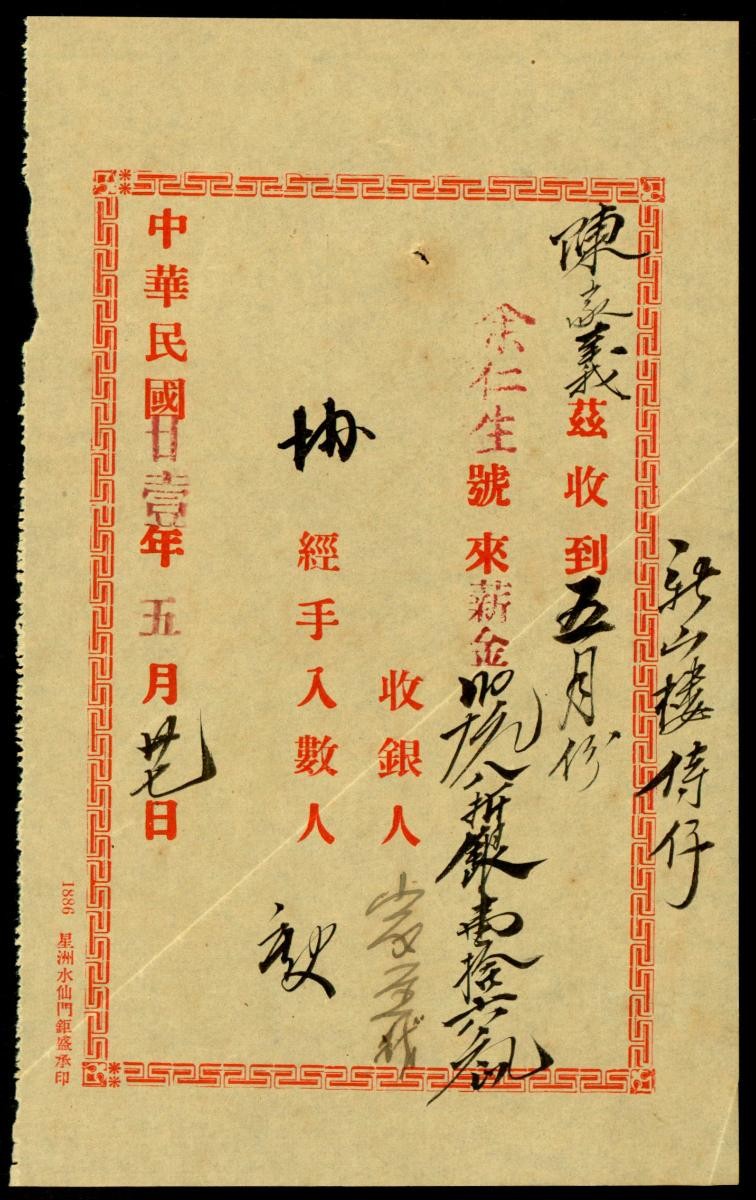 新山樓侍仔
陳家義茲收到五月份
余仁生號來薪金 八折銀壹拾六元
收銀人
協經手入數人
中華民國廿壹年五月廿七日
1886 星洲水仙門鉅盛承印